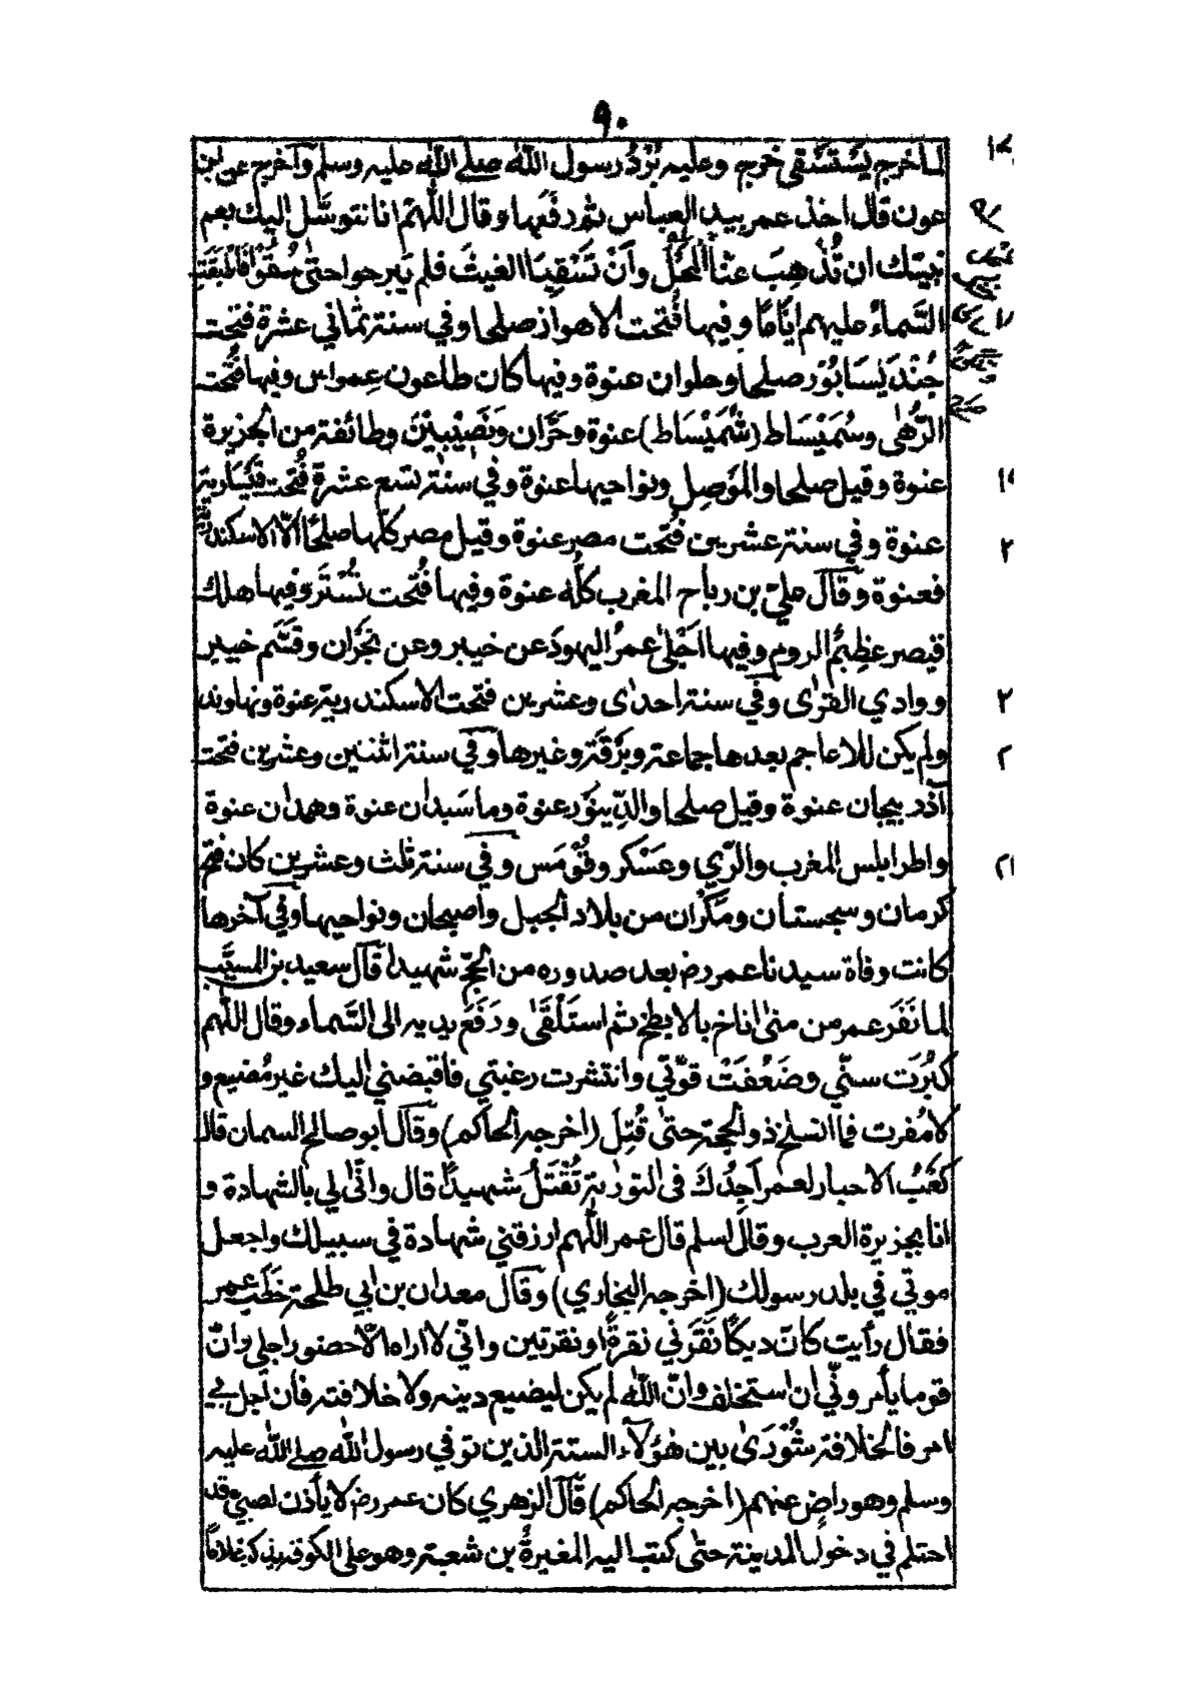 ٩٠
لما خرج يَسْتَسْقي خرج وعليه بُرْدُ رسول الله صلى الله عليه وسلم وآخرج عن ابن
عون قال اخذ عمر بيد العباس ثم رفَعَها وقال اللّٰهمّ انا نتوسَّل اليك بعم
نبيك ان تُذْهِبَ عنّا المَحْلَ وأنْ تَسْقِيَنا الغيثَ فلم يَبرحوا حتى سُقوا فاَطْبَقَتِ
السَّماءُ عليهم ايّامًا وفيها فُتحت الاهواز صلحا وفي سنة ثماني عشرة فتحت
جُنْدَيْسَابُوْر صلحاً وحلوان عنوة وفيها كان طاعون عِمواس وفيها فُتحت
الرُّهٰى وسُمَيْسَاط (شُمَيْسَاط) عنوة وحَرّان ونَصِيْبِيْن وطائفة من الجزيرة
عنوة وقيل صلحا والمَوصِل ونواحيها عنوة وفي سنة تسع عشرة فُتحت قيْسارية
عنوة وفي سنة عشرين فُتحت مصر عنوة وقيل مصر كلّها صلحًا الّا الاسكندرية
فعنوة وقال علي بن رباح المغرب كلُّه عنوة وفيها فُتحت تُسْتَر وفيها هلك
قيصر عظيمُ الروم وفيها اَجْلٰى عمرُ اليهودَ عن خيبر وعن نَجْرَان وقَسَّم خيبر
ووادي القرٰى وفي سنة احدٰى وعشرين فتحت الاسكندرية عنوة ونهاوند
ولم يكن للاعاجم بعدها جماعة وبَرْقَة وغيرها وفي سنة اثنتين وعشرين فتحت
آذربيجان عنوة وقيل صلحا والدِّينوَر عنوة وماسَبذان عنوة وهمدان عنوة
واطرابلس المغرب والرّي وعَسْكر وقُوْمَس وفي سنة ثلث وعشرين كان فتح
كرمان وسجستان ومَكْران من بلاد الجبل واصبهان ونواحيها وفي آخرها
كانت وفاة سيدنا عمر رض بعد صدوره من الحجّ شهيدا قال سعيد بن المسيَّب
لما نَفَر عمر من منىٰ اناخ بالابطح ثم استَلْقَىٰ ورَفَعَ يديه الى السَّماء وقال اللّٰهم
كَبُرَت سنّي وضَعُفَتْ قوّتي وانتشرت رعيتي فاقبضني اليك غير مُضيع و
لا مُفرت فما انسلخ ذو الحجة حتىٰ قُتِل (اخرجه الحاكم) وقال ابو صالح السمان قال
كَعْبُ الاحبار لعمر اَجِدُكَ في التورٰية تُقْتَلُ شهيداً قال وانّى لي بالشهادة و
انا بجزيرة العرب وقال اسلم قال عمر اللّٰهم ارزقني شهادة في سبيلك واجعل
موتي في بلد رسولك (اخرجه البخاري) وقال معدان بن ابي طلحة خَطَب عمر
فقال رأيت كانّ ديكًا نَقَرَني نقرةً او نقرتين وانّي لا اراه الّا حضور اجلي وانّ
قوما يأمرونّي ان استخلف وانّ اللّٰه لم يكن ليضيع دينه ولا خلافته فان عجل بي
امر فالخلافة شُوْرَىٰ بين هٰؤلاء الستة الذين توفي رسول اللّٰه صلى اللّٰه عليه
وسلم وهو راضٍ عنهم (اخرجه الحاكم) قال الزهري كان عمر رض لا يأذن لصبيّ قد
احتلم في دخول المدينة حتى كتب اليه المغيرةُ بن شعبة وهو على الكوفة يذكر غلامًا